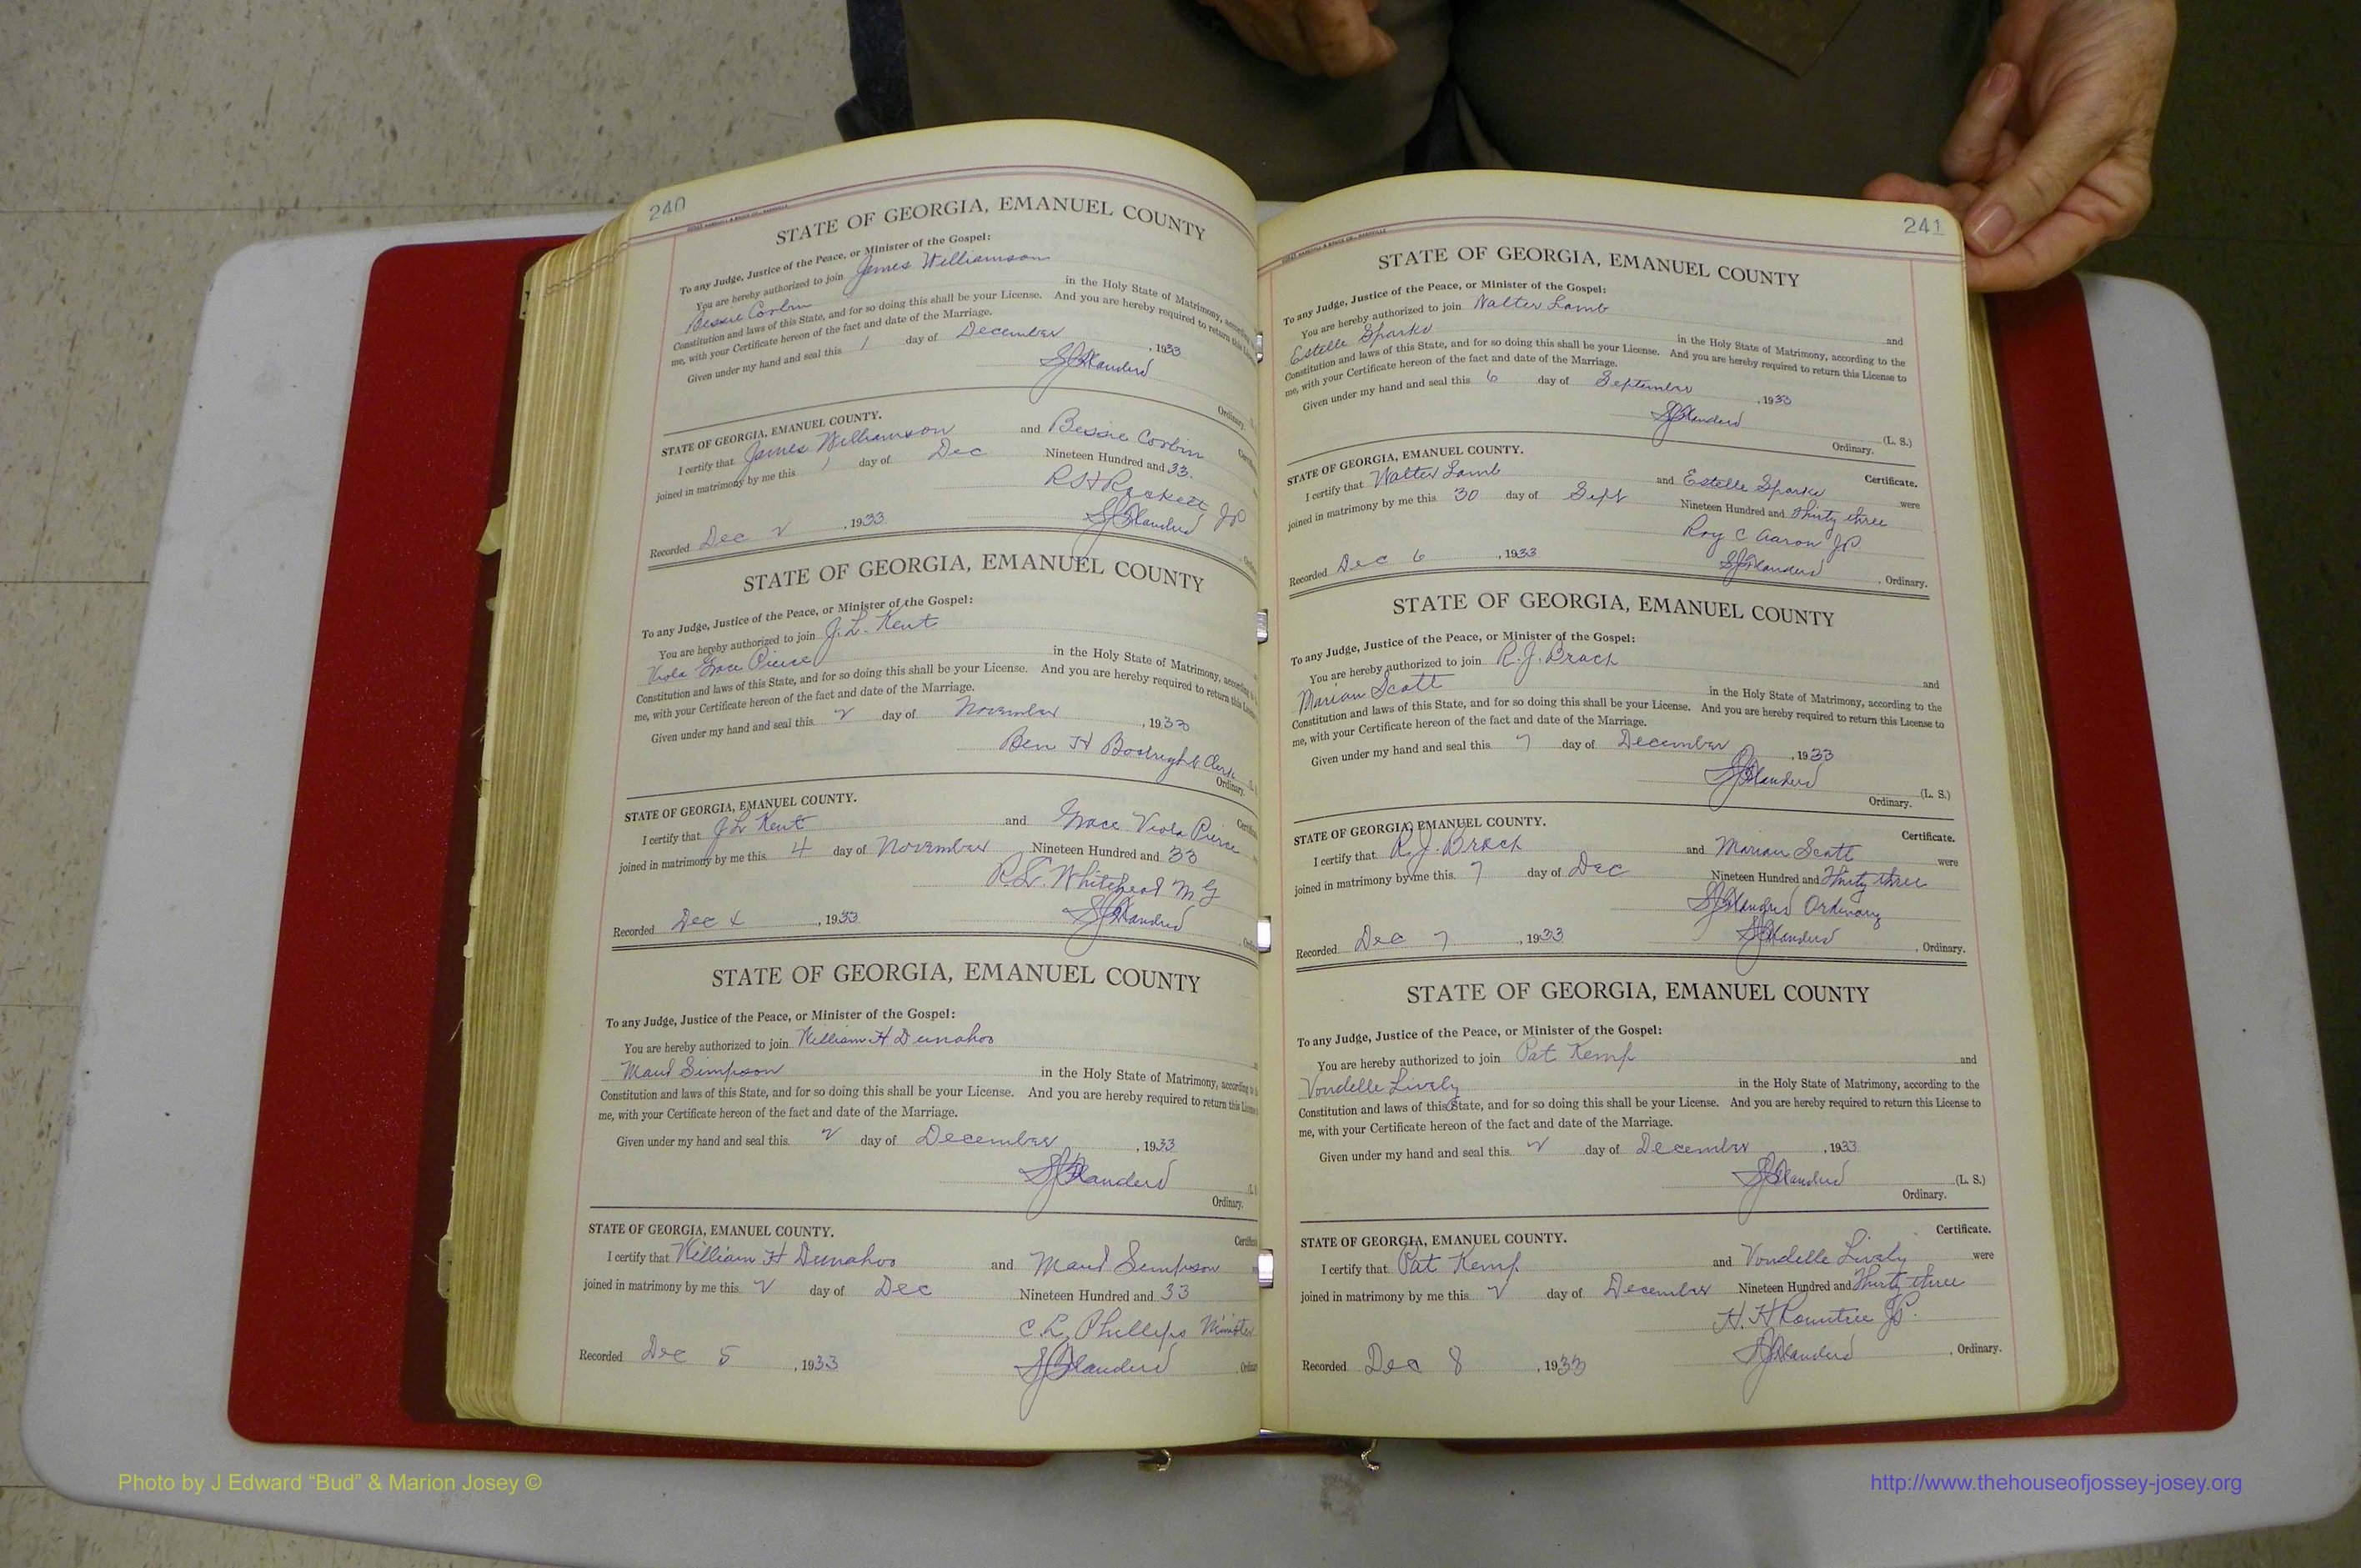 240
STATE OF GEORGIA, EMANUEL COUNTY
To any Judge, Justice of the Peace, or Minister of the Gospel:
You are hereby authorized to join James Williamson
Bessie Corbin in the Holy State of Matrimony, according
Constitution and laws of this State, and for so doing this shall be your License. And you are hereby required to return this
me, with your Certificate hereon of the fact and date of the Marriage.
Given under my hand and seal this 1 day of December, 1933
Ordinary.
STATE OF GEORGIA, EMANUEL COUNTY.
I certify that James Williamson and Bessie Corbin
joined in matrimony by me this 1 day of Dec Nineteen Hundred and 33.
R H Rackett JP
Recorded Dec 2, 1933
STATE OF GEORGIA, EMANUEL COUNTY
To any Judge, Justice of the Peace, or Minister of the Gospel:
You are hereby authorized to join J. L. Kent
Viola Grace Pierce in the Holy State of Matrimony, according
Constitution and laws of this State, and for so doing this shall be your License. And you are hereby required to return this
me, with your Certificate hereon of the fact and date of the Marriage.
Given under my hand and seal this 2 day of November, 1933
Ben H Boatright Clerk
Ordinary.
STATE OF GEORGIA, EMANUEL COUNTY.
I certify that J L Kent and Grace Viola Pierce
joined in matrimony by me this 4 day of November Nineteen Hundred and 33
Whitehead M G
Recorded Dec 4, 1933
STATE OF GEORGIA, EMANUEL COUNTY
To any Judge, Justice of the Peace, or Minister of the Gospel:
You are hereby authorized to join William H Dunahoo
Maud Simpson in the Holy State of Matrimony, according to
Constitution and laws of this State, and for so doing this shall be your License. And you are hereby required to return this License
me, with your Certificate hereon of the fact and date of the Marriage.
Given under my hand and seal this 2 day of December, 1933
S J Flanders
Ordinary.
STATE OF GEORGIA, EMANUEL COUNTY.
I certify that William H Dunahoo and Maud Simpson
joined in matrimony by me this 2 day of Dec Nineteen Hundred and 33
C. L. Phillips Minister
Recorded Dec 5, 1933
241
STATE OF GEORGIA, EMANUEL COUNTY
To any Judge, Justice of the Peace, or Minister of the Gospel:
You are hereby authorized to join Walter Lamb and
Estelle Sparks in the Holy State of Matrimony, according to the
Constitution and laws of this State, and for so doing this shall be your License. And you are hereby required to return this License to
me, with your Certificate hereon of the fact and date of the Marriage.
Given under my hand and seal this 6 day of September, 1933
(L. S.)
Ordinary.
STATE OF GEORGIA, EMANUEL COUNTY. Certificate.
I certify that Walter Lamb and Estelle Sparks were
joined in matrimony by me this 30 day of Sept Nineteen Hundred and Thirty three
Roy C Aaron JP
Recorded Dec 6, 1933 , Ordinary.
STATE OF GEORGIA, EMANUEL COUNTY
To any Judge, Justice of the Peace, or Minister of the Gospel:
You are hereby authorized to join R. J. Brack and
Marian Scott in the Holy State of Matrimony, according to the
Constitution and laws of this State, and for so doing this shall be your License. And you are hereby required to return this License to
me, with your Certificate hereon of the fact and date of the Marriage.
Given under my hand and seal this 7 day of December, 1933
(L. S.)
Ordinary.
STATE OF GEORGIA, EMANUEL COUNTY. Certificate.
I certify that R. J. Brack and Marian Scott were
joined in matrimony by me this 7 day of Dec Nineteen Hundred and Thirty three
S J Flanders Ordinary
Recorded Dec 7, 1933 , Ordinary.
STATE OF GEORGIA, EMANUEL COUNTY
To any Judge, Justice of the Peace, or Minister of the Gospel:
You are hereby authorized to join Pat Kemp and
Vondelle Lively in the Holy State of Matrimony, according to the
Constitution and laws of this State, and for so doing this shall be your License. And you are hereby required to return this License to
me, with your Certificate hereon of the fact and date of the Marriage.
Given under my hand and seal this 2 day of December, 1933
S J Flanders (L. S.)
Ordinary.
STATE OF GEORGIA, EMANUEL COUNTY. Certificate.
I certify that Pat Kemp and Vondelle Lively were
joined in matrimony by me this 2 day of December Nineteen Hundred and Thirty three
H. H Rountree JP.
Recorded Dec 8, 1933 S J Flanders, Ordinary.
Photo by J Edward “Bud” & Marion Josey ©
http://www.thehouseofjossey-josey.org